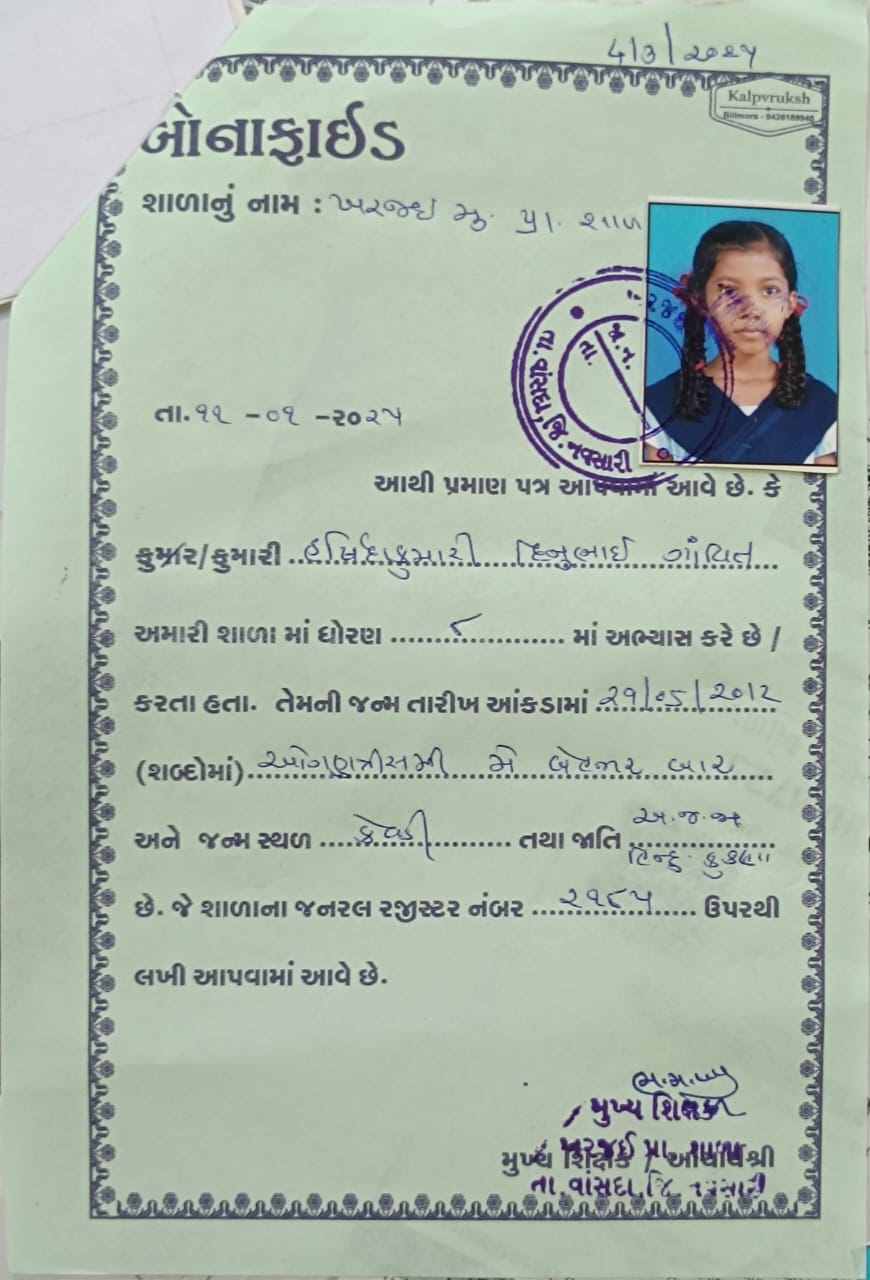 ૮/૩/૨૦૨૫
Kalpvruksh
Billimora - 9426189946
બોનાફાઈડ
શાળાનું નામ : ખરજઈ મુ. પ્રા. શાળા
તા.
તા. વાંસદા, જિ. નવસારી
તા. ૧૧ -૦૧ -૨૦૨૫
આથી પ્રમાણ પત્ર આપવામાં આવે છે. કે
કુમાર/કુમારી હર્ષિદાકુમારી દિનુભાઈ ગાંવિત
અમારી શાળા માં ધોરણ ......૮...... માં અભ્યાસ કરે છે /
કરતા હતા. તેમની જન્મ તારીખ આંકડામાં ૨૧/૦૫/૨૦૧૨
(શબ્દોમાં) મે બેહજાર બાર
અને જન્મ સ્થળ ...... તથા જાતિ અ.જ.જા
હિન્દુ કુકણા
છે. જે શાળાના જનરલ રજીસ્ટર નંબર ૨૧૮૫ ઉપરથી
લખી આપવામાં આવે છે.
મુખ્ય શિક્ષક
ખરજઈ પ્રા. શાળા
મુખ્ય શિક્ષક / આચાર્યશ્રી
તા. વાંસદા, જિ. નવસારી